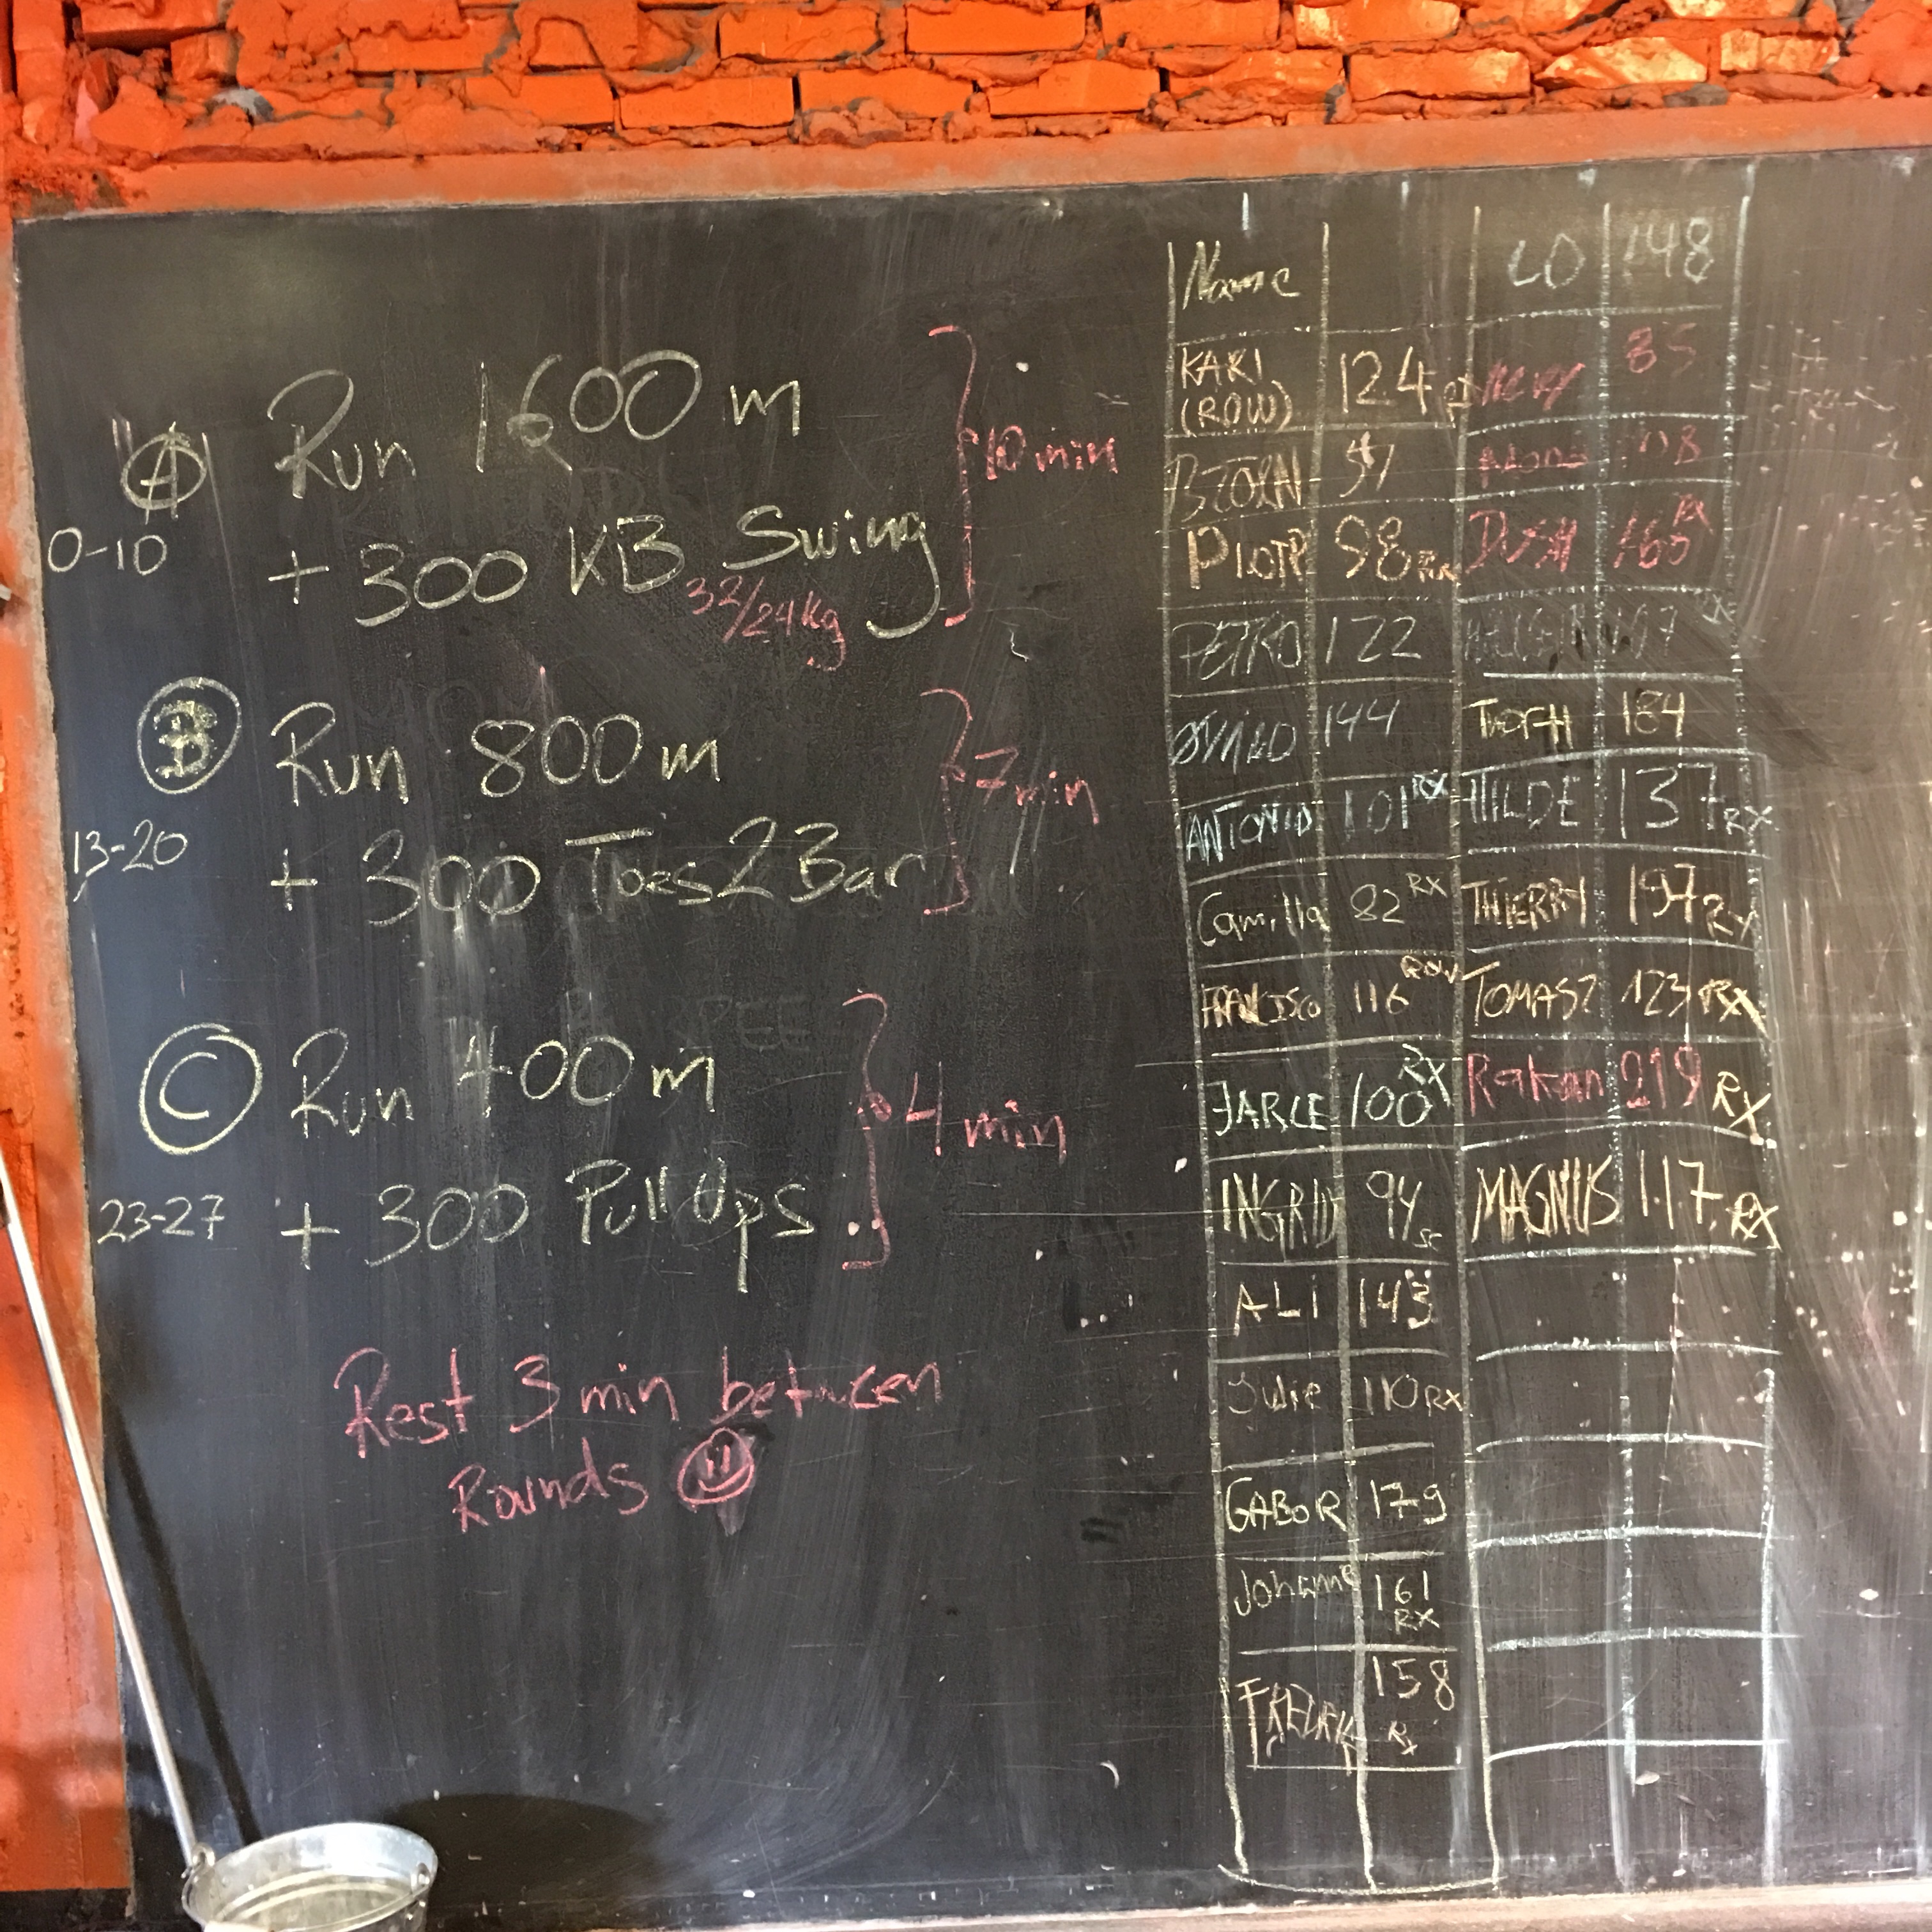 A Run 1600 m
0-10 + 300 KB Swing
32/24kg
10 min
B Run 800 m
13-20 + 300 Toes2Bar
7 min
C Run 400 m
23-27 + 300 PullUps
4 min
Rest 3 min between
Rounds
Name
KARI
(ROW) 124
BJORN
PIOTR 98
PETKO 122
144
ANTONIO 101 RX
Camilla 82 RX
FRANCISCO 116 ROW
JARLE 100 RX
INGRID 94 sc
ALi 143
Julie 110 RX
GABOR 179
Johanne 161
RX
FREDRIK 158
Rx
LO 148
85
184
HILDE 137 RX
THIERRY 197 RX
TOMASZ 123 RX
Rakan 219 RX
MAGNUS 117 RX